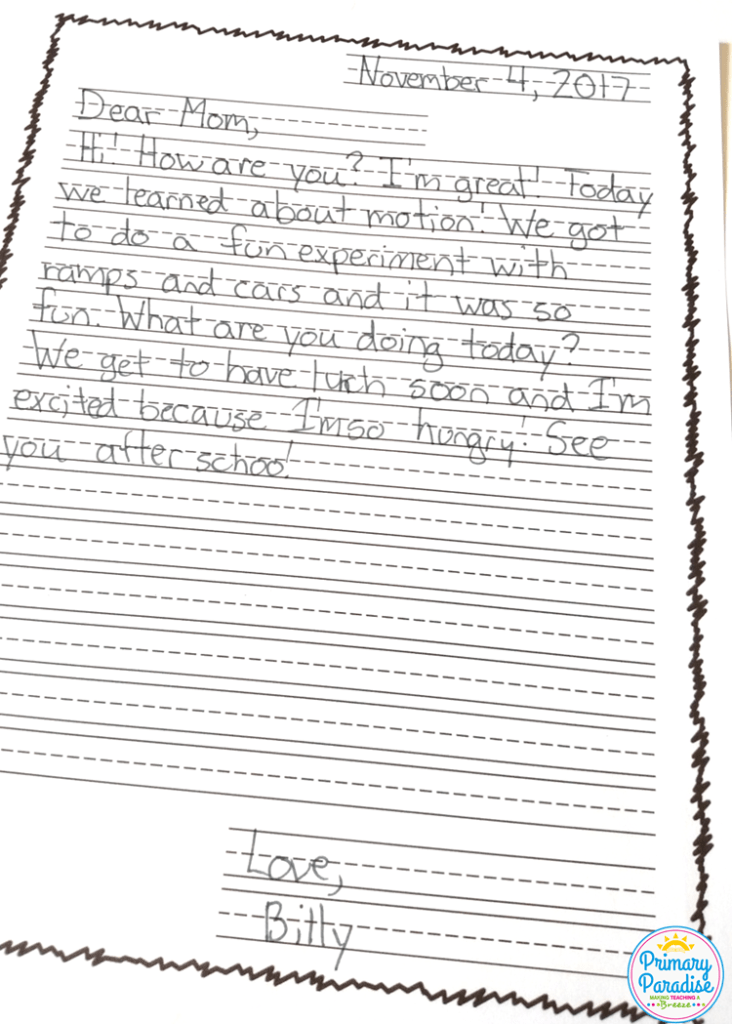 November 4, 2017
Dear Mom,
Hi! How are you? I'm great! Today
we learned about motion! We got
to do a fun experiment with
ramps and cars and it was so
fun. What are you doing today?
We get to have luch soon and I'm
excited because I'm so hungry! See
you after school!
Love,
Billy
Primary
Paradise
MAKING TEACHING A
Breeze